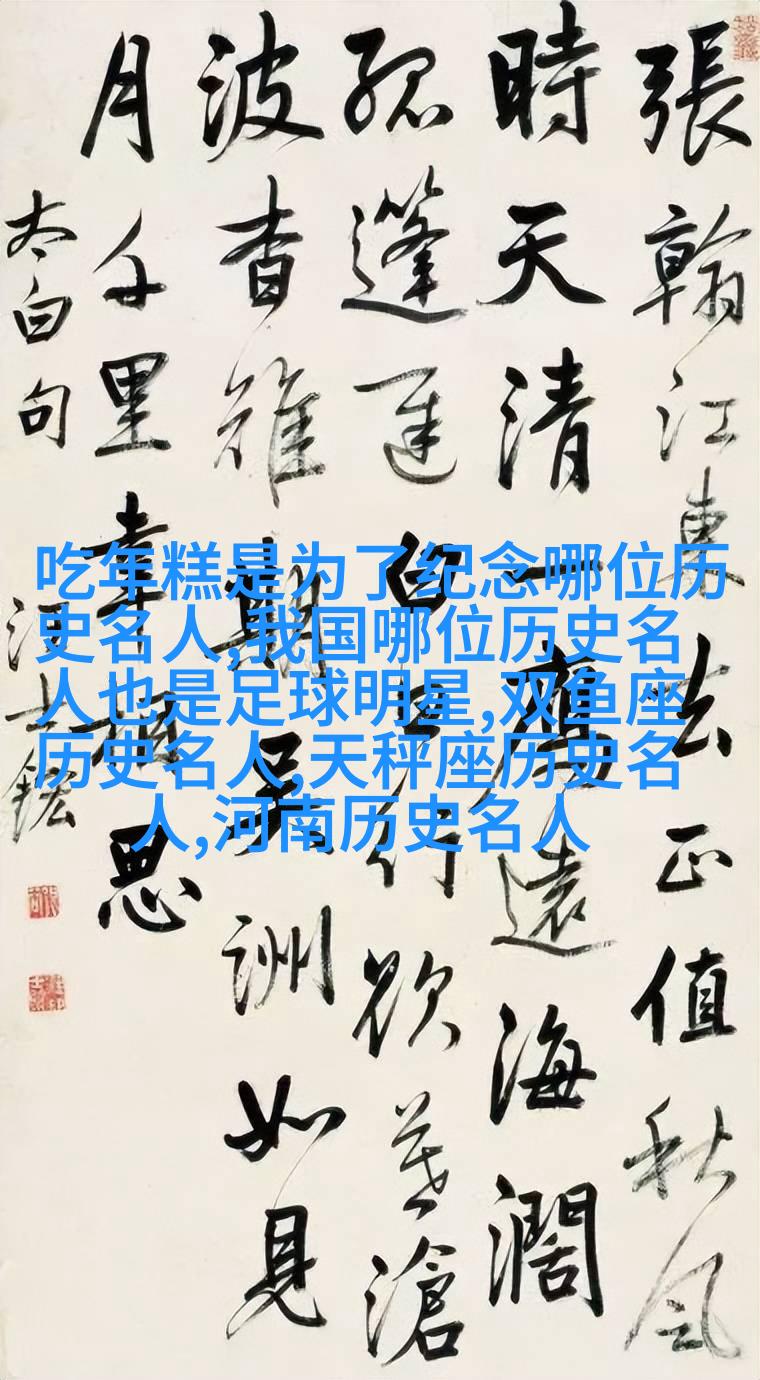 張翰江東去正值秋風
時天清一鴈遠海濶
孤蓬遲白日行欲暮滄
波杳難期吳洲如見
月千里幸相思
太白句
汪士鋐
吃年糕是为了纪念哪位历
史名人,我国哪位历史名
人也是足球明星,双鱼座
历史名人,天秤座历史名
人,河南历史名人